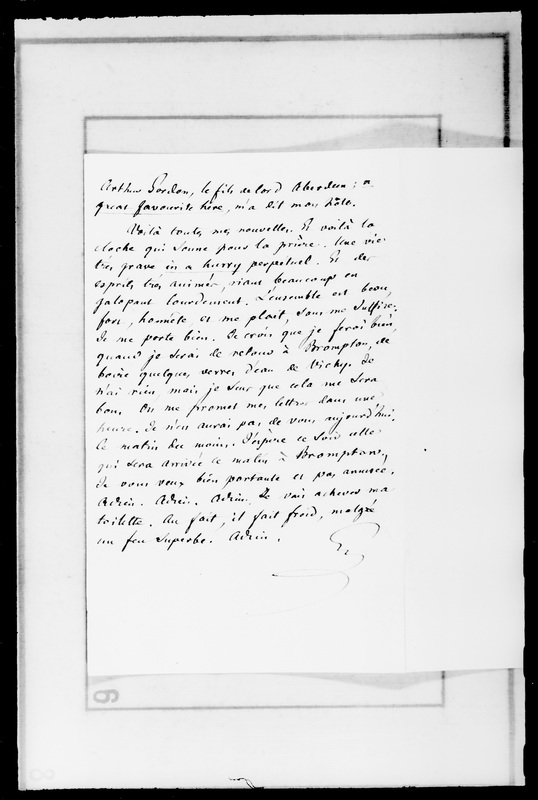 Arthur Gordon, le fils de lord Aberdeen ; a
great favourite here, m'a dit mon hôte.
Voilà toutes mes nouvelles. Et voilà la
cloche qui sonne pour la prière. Une vie
très grave in a hurry perpetuel. Et des
esprits très animés, riant beaucoup en
galopant lourdement. L'ensemble est beau,
fort, honnête et me plait, sans me suffire.
Je me porte bien. Je crois que je ferai bien,
quand je serai de retour à Brompton, de
boire quelques verres d'eau de Vichy. Je
n'ai rien, mais je sens que cela me sera
bon. On me promet mes lettres dans une
heure. Je n'en aurai pas de vous aujourd'hui.
Ce matin du moins. J'espère ce soir celle
qui sera arrivée ce matin à Brompton.
Je vous veux bien portante et pas ennuyée.
Adieu. Adieu. Adieu. Je vais achever ma
toilette. Au fait, il fait froid, malgré
un feu superbe. Adieu.
G
9
8